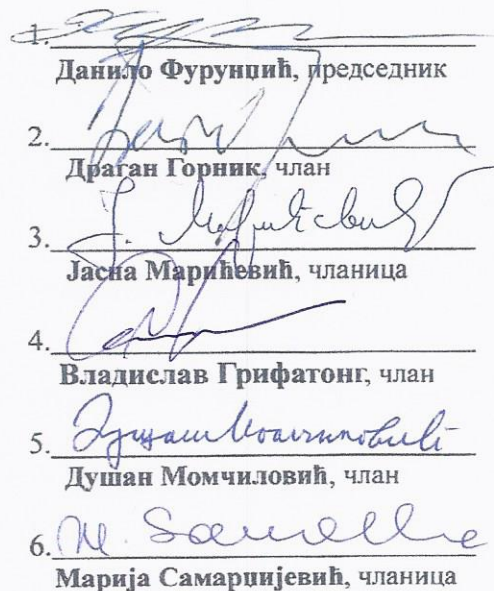 1.
Данило Фурунџић, председник
2.
Драган Горник, члан
3. Ј. Марићевић
Јасна Марићевић, чланица
4.
Владислав Грифатонг, члан
5. Душан Момчиловић
Душан Момчиловић, члан
6. М. Sam
Марија Самарџијевић, чланица